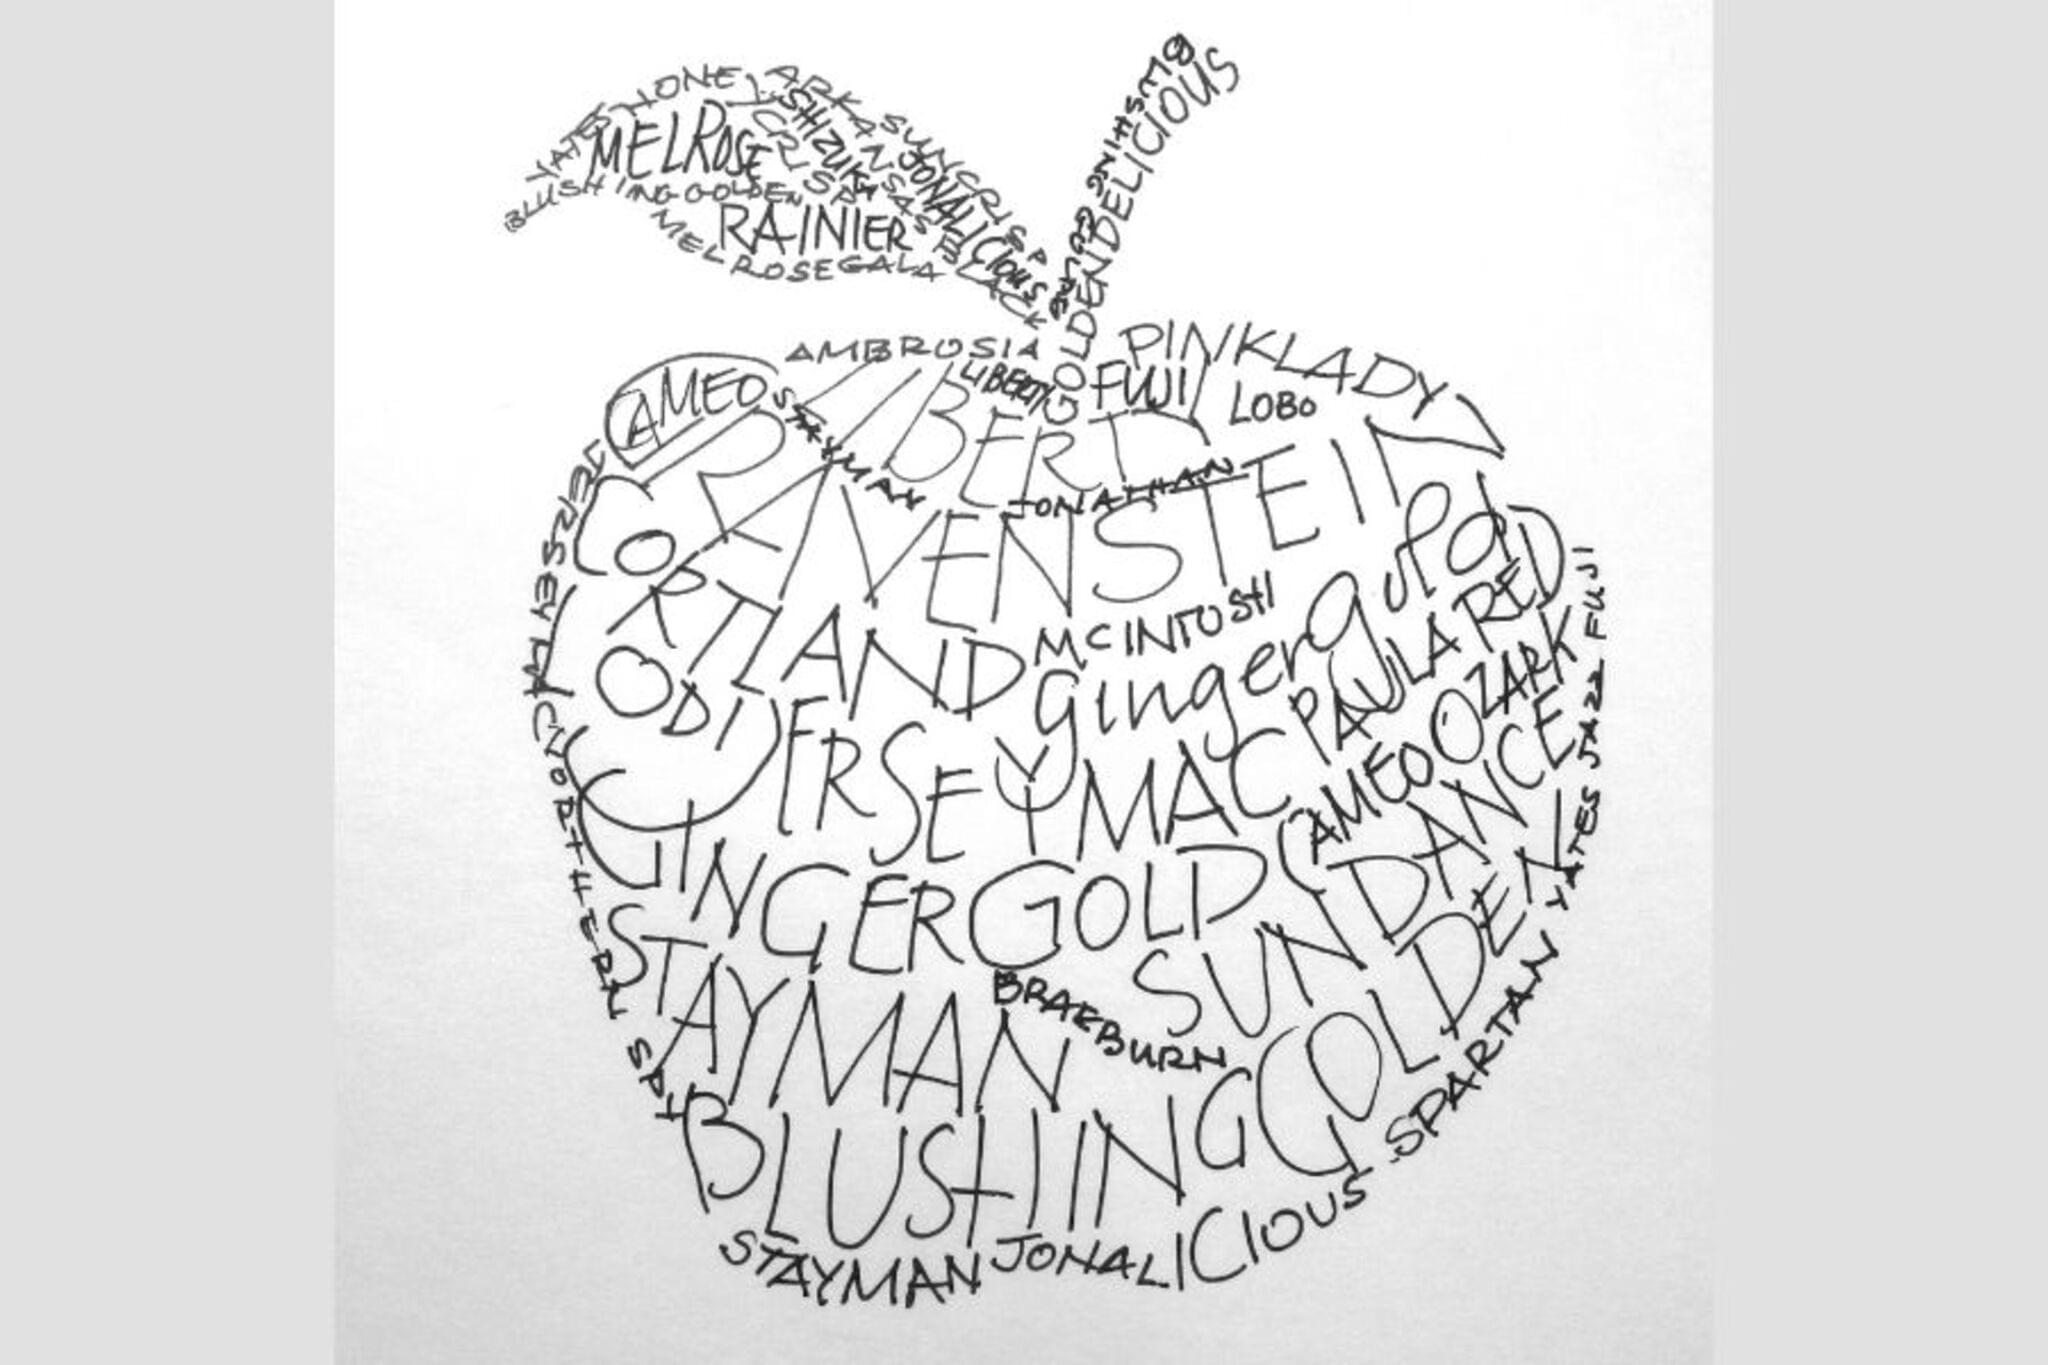 GOLDEN DELICIOUS
YATES
HONEY
CRISP
ARKANSAS BLACK
SUNCRISP
MELROSE
SHIZUKA
JONALICIOUS
BLUSHING GOLDEN
RAINIER
MELROSE GALA
AMBROSIA
LIBERTY
FUJI
PINKLADY
LOBO
CAMEO
STAYMAN
JONATHAN
GRAVENSTEIN
JERSEY MAC
CORTLAND
MCINTOSH
gingergold
PAULA RED
FUJI
JAZZ
YATES
JERSEYMAC
CAMEO
OZARK
NORTHERN SPY
GINGERGOLD
SUNDANCE
STAYMAN
BRAEBURN
BLUSHING GOLDEN
SPARTAN
STAYMAN
JONALICIOUS